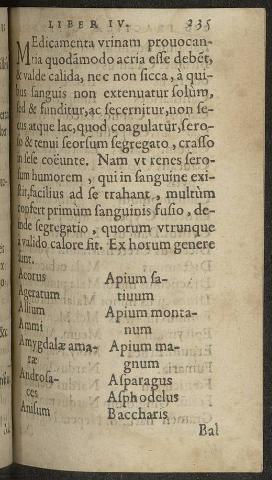 LIBER IV. 235
MEdicamenta vrinam prouocan-
tia quodãmodo acria esse debẽt,
& valde calida, nec non sicca, à qui-
bus sanguis non extenuatur solùm,
sed & funditur, ac secernitur, non se-
cus atque lac, quod coagulatũr, sero-
so & tenui seorsum segregato, crasso
in sese coëunte. Nam vt renes sero-
sum humorem, qui in sanguine exi-
stit, facilius ad se trahant, multùm
confert primùm sanguinis fusio, de-
inde segregatio, quorum vtrunque
à valido calore fit. Ex horum genere
sunt.
Acorus
Ageratum
Allium
Ammi
Amygdalæ ama-
ræ
Androsa-
ces
Anisum
Apium sa-
tiuum
Apium monta-
num
Apium ma-
gnum
Asparagus
Asphodelus
Baccharis
Bal